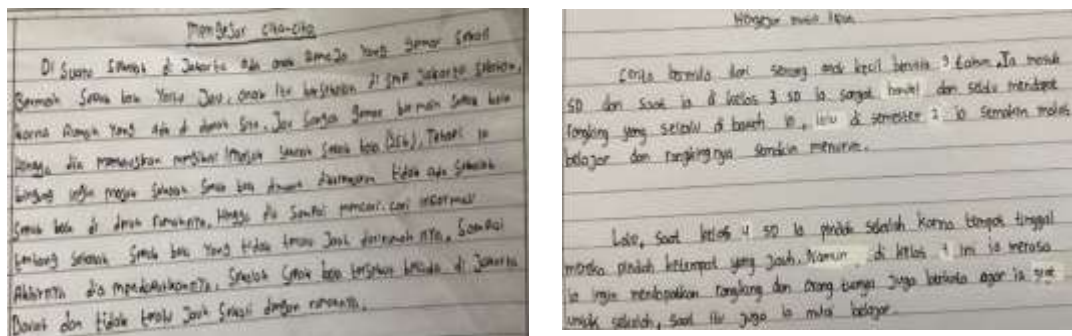 Mengejar cita-cita
Di Suatu Sekolah di Jakarta ada anak remaja Yang gemar Sekali
Bermain Sepak bola Yaitu Jay, anak itu bersekolah di SMP Jakarta Selatan,
karna Rumah Yang ada di daerah Situ. Jay Sangat gemar bermain Sepak bola
hingga dia memutuskan masuk Sekolah Sepak bola (SSB), Tetapi ia
bingung ingin masuk Sekolah Sepak bola dimana dikarenakan tidak ada Sekolah
Sepak bola di daerah rumahnya, hingga dia Sampai mencari-cari informasi
tentang Sekolah Sepak bola Yang tidak terlalu Jauh dari rumahnya, Sampai
Akhirnya dia mendapatkannya, Sekolah Sepak bola tersebut berada di Jakarta
Barat dan tidak terlalu Jauh Sekali dengan rumahnya.
Mengejar masa
Cerita bermula dari seorang anak kecil berusia 9 tahun. Ia masuk
SD dan saat ia di kelas 3 SD ia sangat dan selalu mendapat
rangking yang selalu di bawah 10, lalu di semester 2 ia semakin malas
belajar dan rangkingnya semakin menurun.
Lalu, saat kelas 4 SD ia pindah sekolah karna tempat tinggal
mereka pindah ketempat yang jauh. Namun, di kelas 4 ini ia merasa
ia ingin mendapatkan rangking dan orang tuanya juga berkata agar ia giat
untuk sekolah, saat itu juga ia mulai belajar.